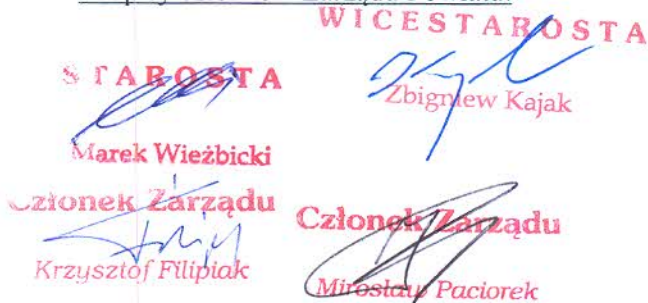 WICESTAROSTA
STAROSTA
Zbigniew Kajak
Marek Wieżbicki
Członek Zarządu
Członek Zarządu
Krzysztof Filipiak
Mirosław Paciorek